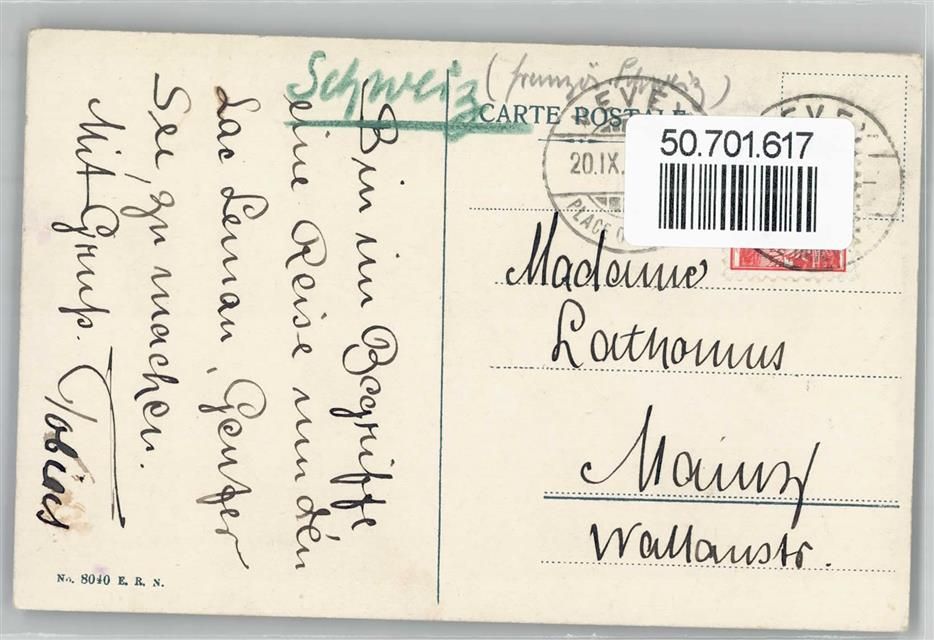 Schweiz
(französ Schweiz)
CARTE POSTALE
50.701.617
VEVEY
20.IX.
PLACE
VEVEY
Bin im Begriffe
eine Reise um den
Lac Leman, Genfer
See, zu machen.
Mit Gruß.
Tobias
Madame
Lathomus
Mainz
Wallaustr.
No. 8040 E. R. N.